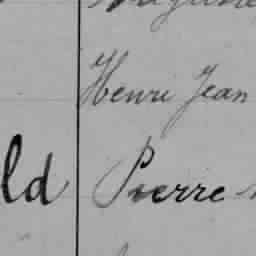 Henri Jean
ld Pierre